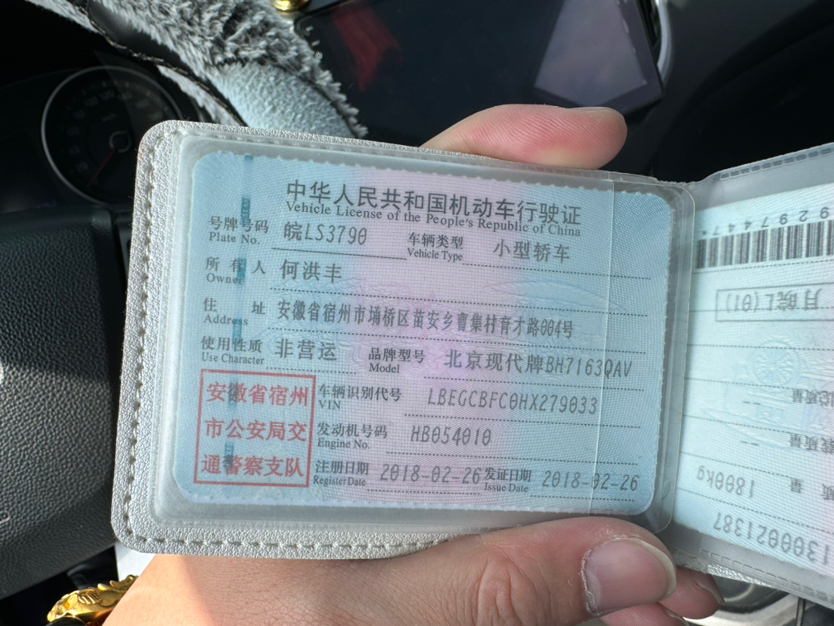 中华人民共和国机动车行驶证
Vehicle License of the People's Republic of China
号牌号码 皖LS3790 车辆类型 小型轿车
Plate No. Vehicle Type
所有人 何洪丰
Owner
住址 安徽省宿州市埇桥区苗安乡曹集村育才路004号
Address
使用性质 非营运 品牌型号 北京现代牌BH7163QAV
Use Character Model
安徽省宿州
市公安局交
通警察支队
车辆识别代号 LBEGCBFC0HX279033
VIN
发动机号码 HB054010
Engine No.
注册日期 2018-02-26 发证日期 2018-02-26
Register Date Issue Date
1800kg